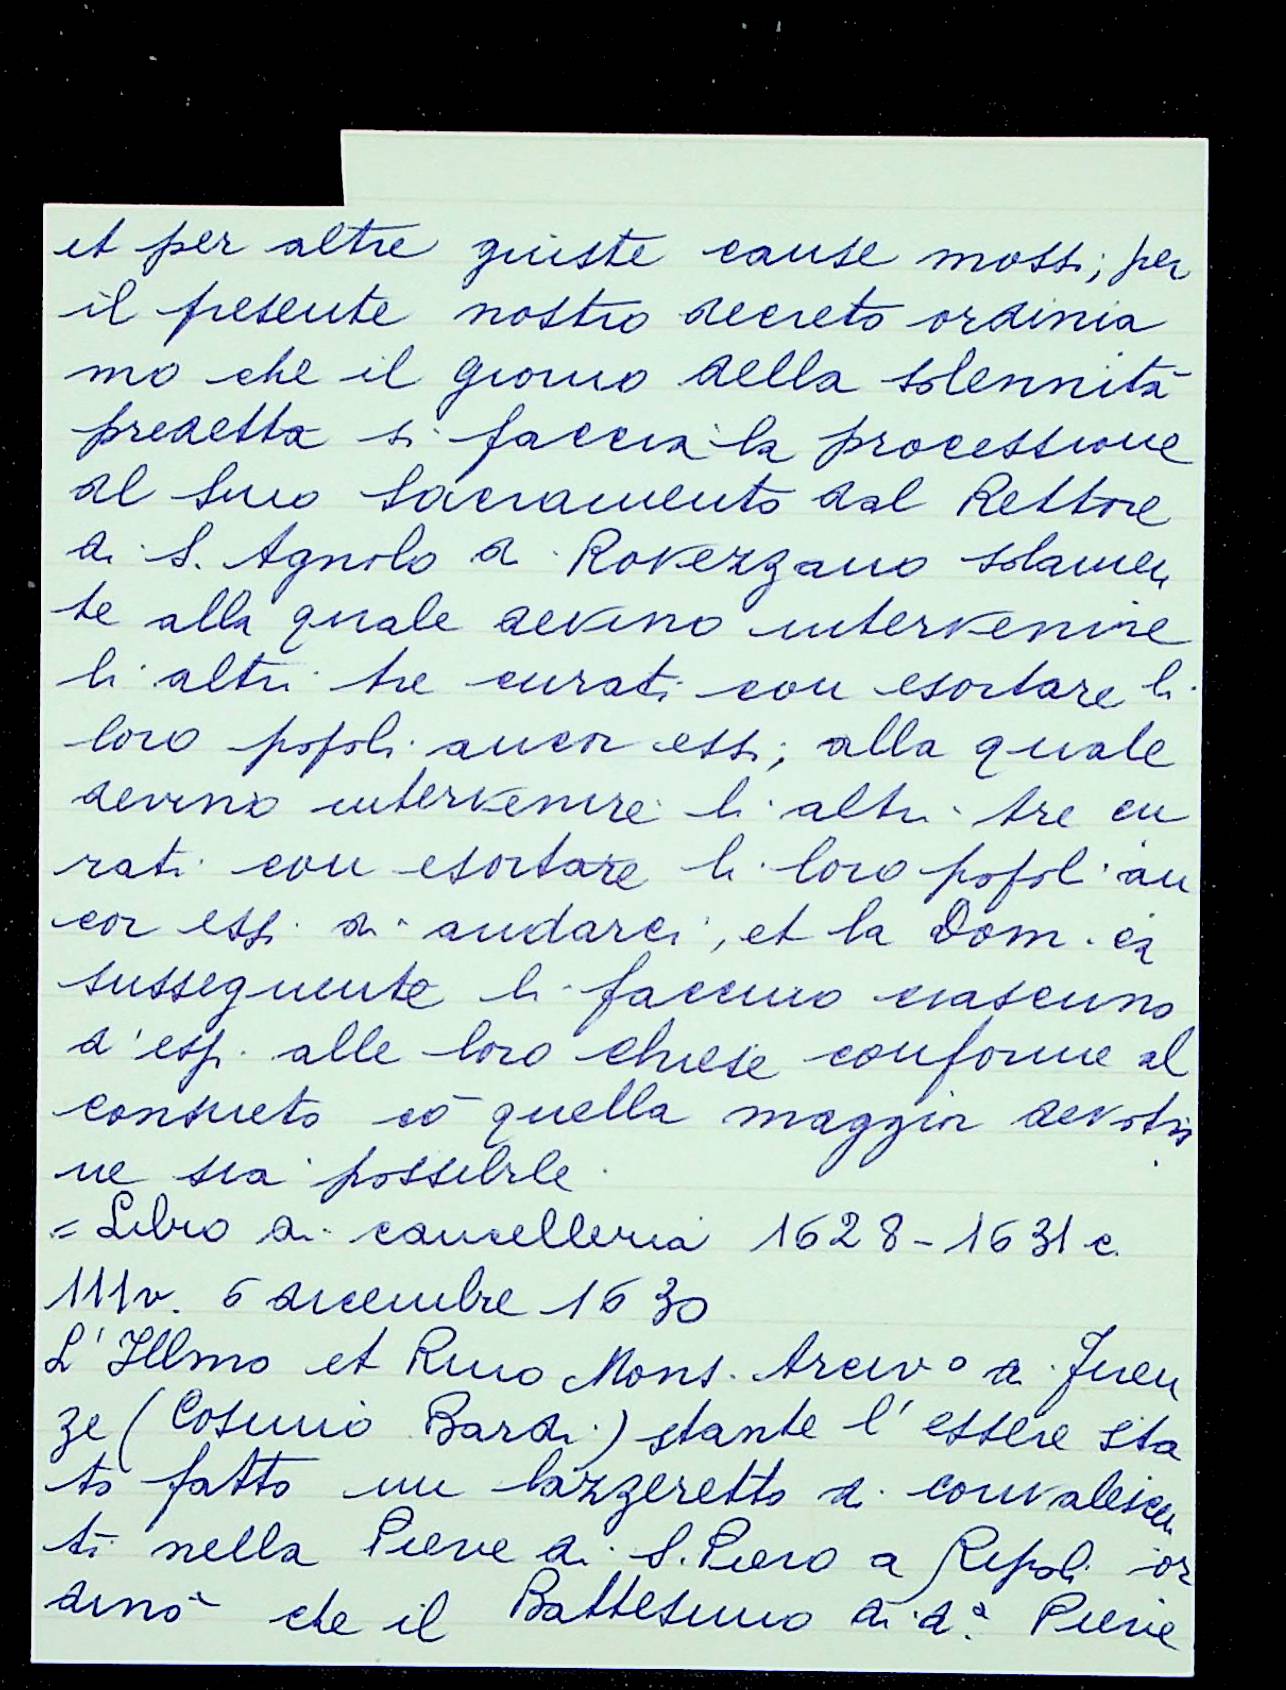 et per altre giuste cause mossi; per
il presente nostro decreto ordinia
mo che il giorno della solennità
predetta si faccia la processione
del Smo Sacramento dal Rettore
di S. Agnolo a Rovezzano solamen
te alla quale devino intervenire
li altri tre curati con esortare li
loro popoli ancor essi; alla quale
devino intervenire li altri tre cu
rati con esortare li loro popoli an
cor essi di andarci, et la Dom.ca
susseguente li faccino ciascuno
d'essi alle loro chiese conforme al
consueto cō quella maggior devotio
ne sia possibile.
= Libro di cancelleria 1628-1631 c.
111v. 6 dicembre 1630
L'Illmo et Rmo Mons. Arciv° di Firen
ze (Cosimo Bardi) stante l'essere sta
to fatto un lazzeretto di convalescen
ti nella Pieve di S. Piero a Ripoli or
dinò che il Battesimo di d.ª Pieve